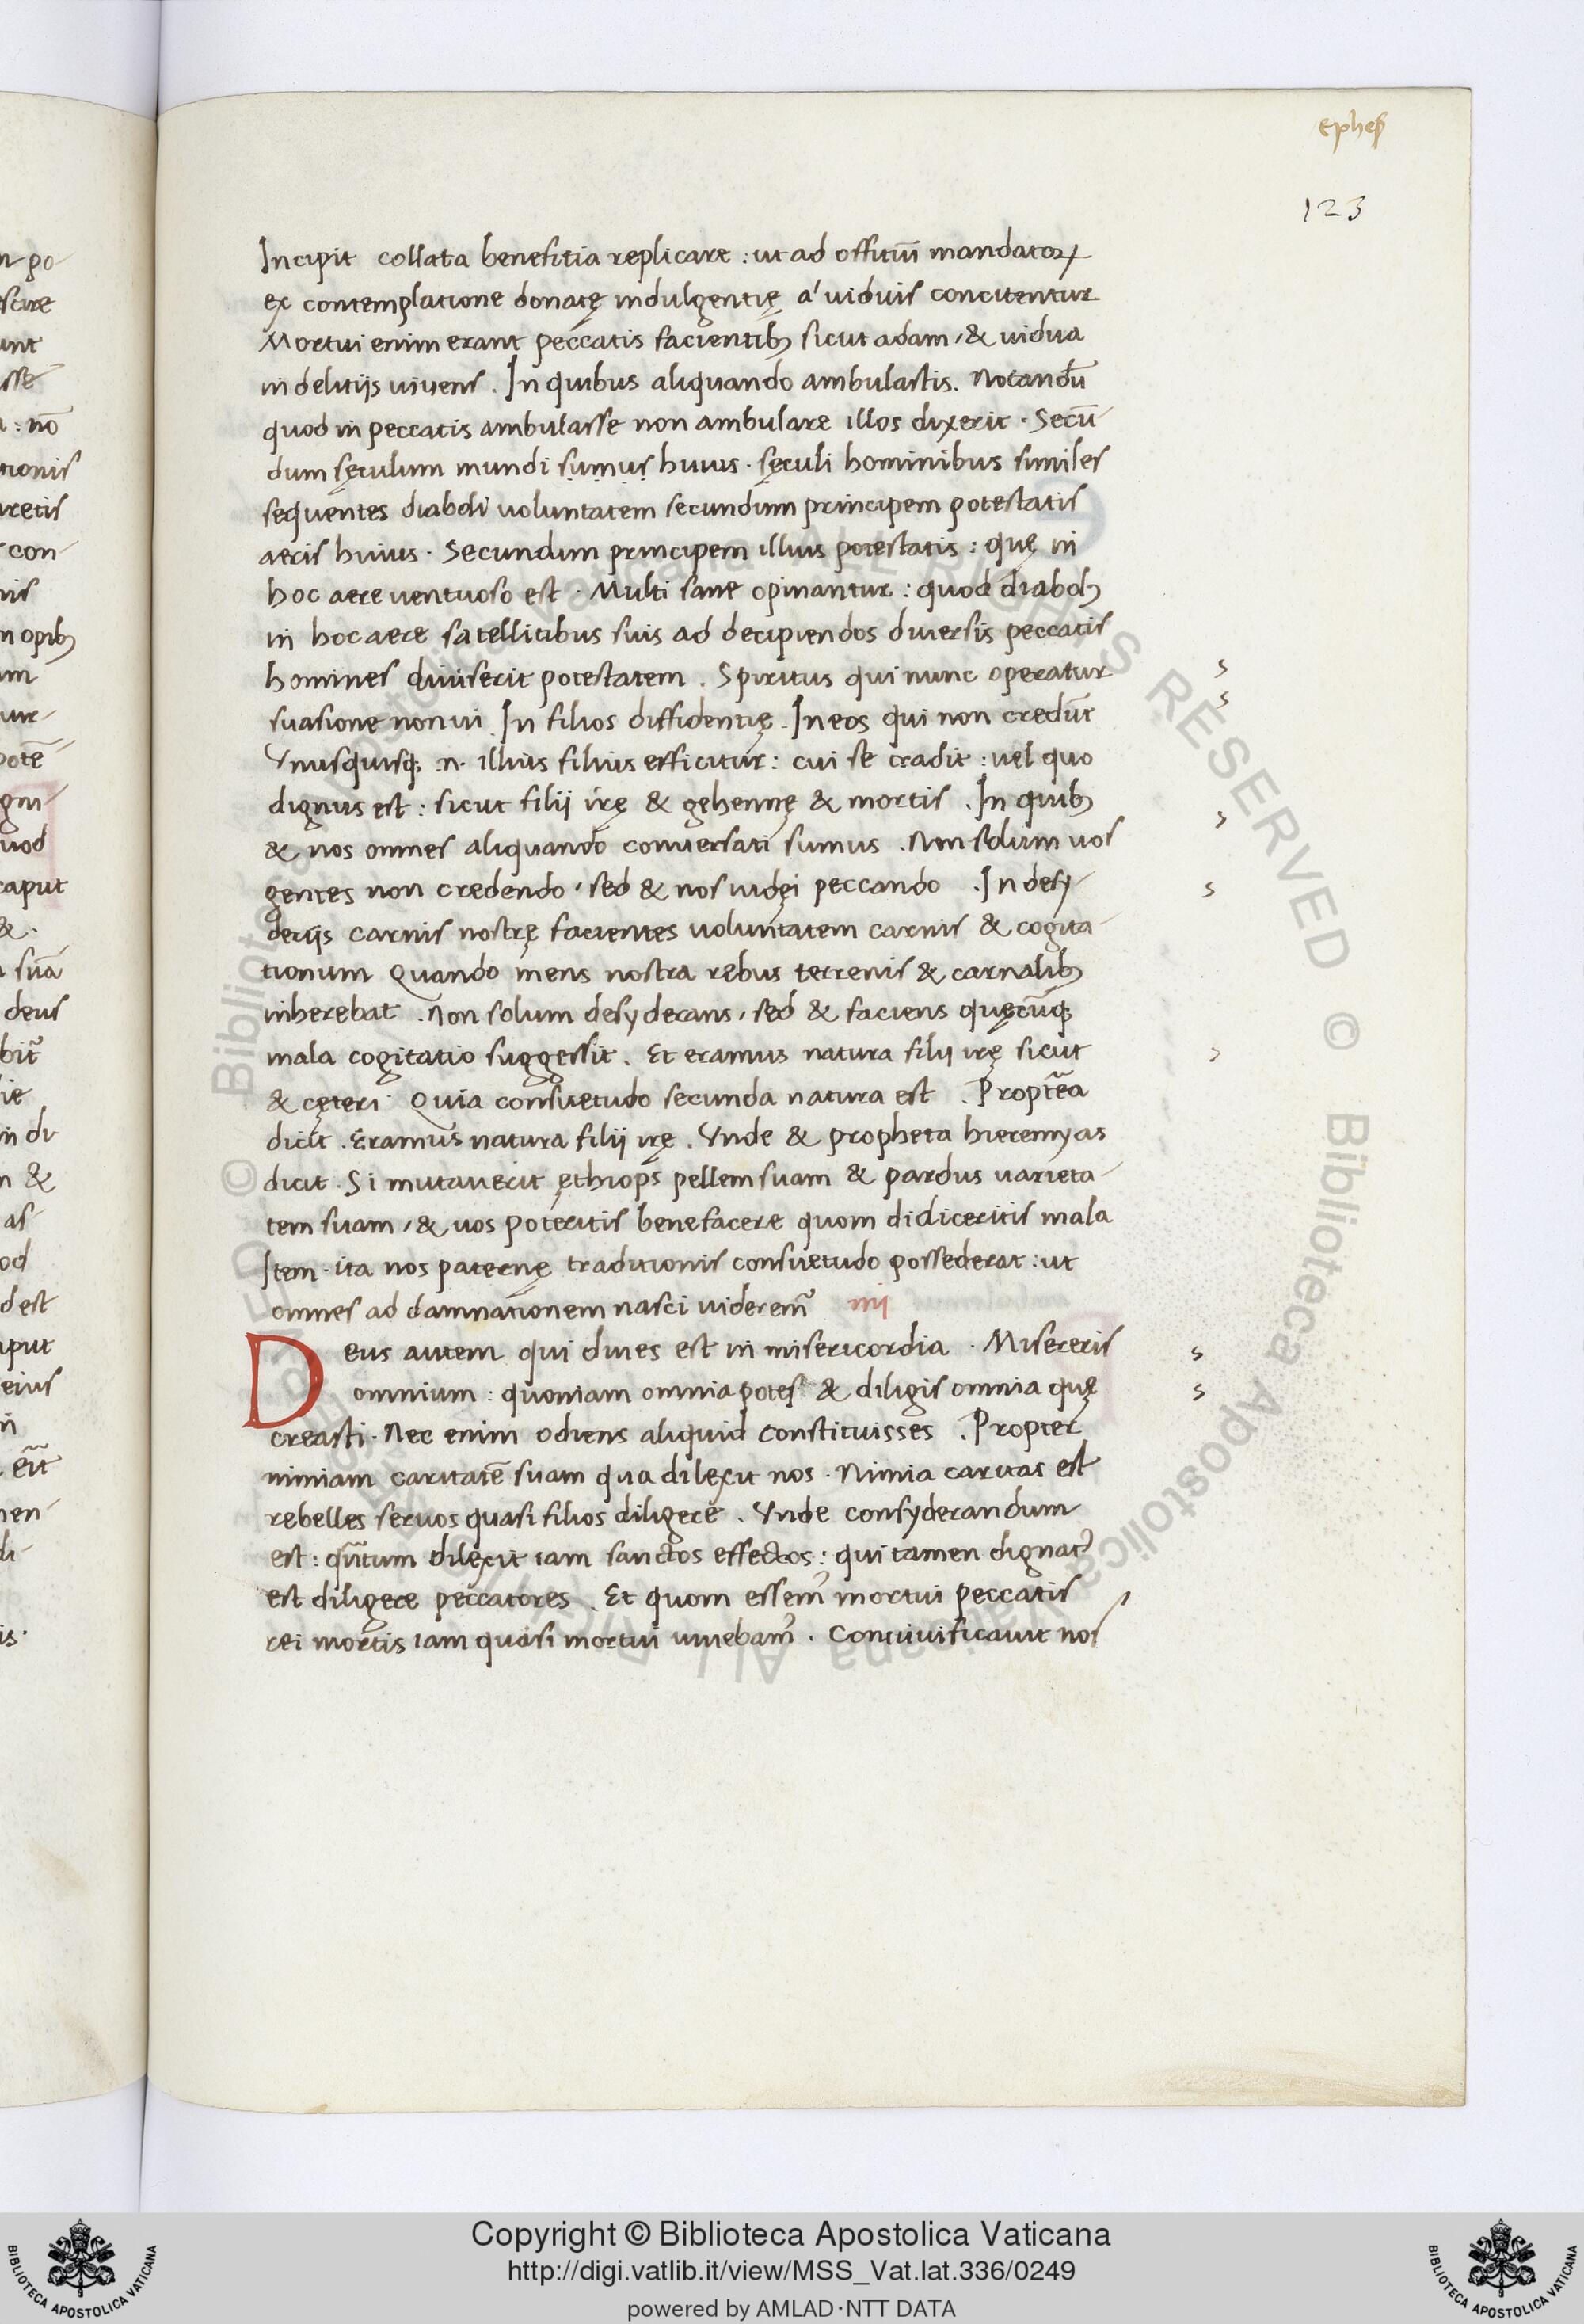 ephes
123
Incipit collata benefitia replicare : ut ad offitiũ mandatoꝝ
ex contemplatione donatę indulgentię a' uiduis concitentur
Mortui enim erant peccatis facientibꝫ sicut adam , & uidua
in delitijs uiuens . In quibus aliquando ambulastis . Notandũ
quod in peccatis ambulasse non ambulare illos dixerit . Secũ-
dum sęculum mundi sumus huius . sęculi hominibus similes
sequentes diaboli uoluntatem secundum principem potestatis
aeris huius . Secundum principem illius potestatis : quę in
hoc aere uentuoso est . Multi sane opinantur : quod diabolꝫ
in hoc aere satellitibus suis ad decipiendos diuersis peccatis
homines diuiserit potestatem . Spiritus qui nunc operatur
suasione non ui . In filios diffidentię . In eos qui non credũt
Vnusquisqꝫ .n. illius filius efficitur : cui se tradit : uel quo
dignus est : sicut filij irę & gehennę & mortis . In quibꝫ
& nos omnes aliquando conuersati sumus . Non solum uos
gentes non credendo , sed & nos iudęi peccando . In desy-
derijs carnis nostrę facientes uoluntatem carnis & cogita-
tionum Quando mens nostra rebus terrenis & carnalibꝫ
inherebat . Non solum desyderans , sed & faciens quęcũqꝫ
mala cogitatio suggessit . Et eramus natura filij irę sicut
& cęteri Quia consuetudo secunda natura est . Propt̃ea
dicit . Eramus natura filij irę . Vnde & propheta hieremyas
dicit . Si mutauerit ęthiops pellem suam & pardus uarieta-
tem suam , & uos poteritis benefacere quom didiceritis mala
Item . ita nos paternę traditionis consuetudo possederat : ut
omnes ad damnationem nasci uideremꝰ iiij
Deus autem qui diues est in misericordia . Misereris
omnium : quoniam omnia potes & diligis omnia quę
creasti . Nec enim odiens aliquid constituisses . Propter
nimiam caritatẽ suam qua dilexit nos . Nimia caritas est
rebelles seruos quasi filios diligere . Vnde consyderandum
est : qũtum dilexit iam sanctos effectos : qui tamen dignatꝰ
est diligere peccatores . Et quom essemꝰ mortui peccatis
rei mortis iam quasi mortui uiuebamꝰ . Conuiuificauit nos
Copyright © Biblioteca Apostolica Vaticana
http://digi.vatlib.it/view/MSS_Vat.lat.336/0249
powered by AMLAD·NTT DATA